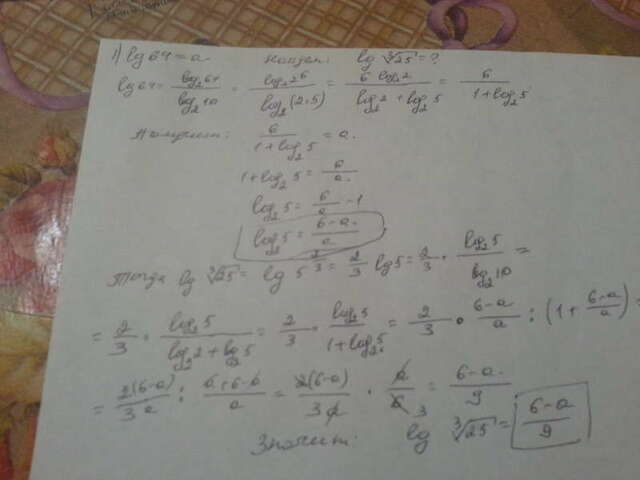 1) lg 64 = a. Найдем: lg ∛25 = ?
lg 64 = log₂64 / log₂10 = log₂2⁶ / log₂(2·5) = 6 log₂2 / (log₂2 + log₂5) = 6 / (1 + log₂5)
Получили: 6 / (1 + log₂5) = a.
1 + log₂5 = 6/a.
log₂5 = 6/a - 1
log₂5 = (6-a)/a
Тогда lg ∛25 = lg 5^(2/3) = 2/3 lg 5 = 2/3 · log₂5 / log₂10 =
= 2/3 · log₂5 / (log₂2 + log₂5) = 2/3 · log₂5 / (1 + log₂5) = 2/3 · (6-a)/a : (1 + (6-a)/a) =
= 2(6-a)/3a : (a+6-a)/a = 2(6-a)/3a · a/6 3 = (6-a)/9
Значит: lg ∛25 = (6-a)/9